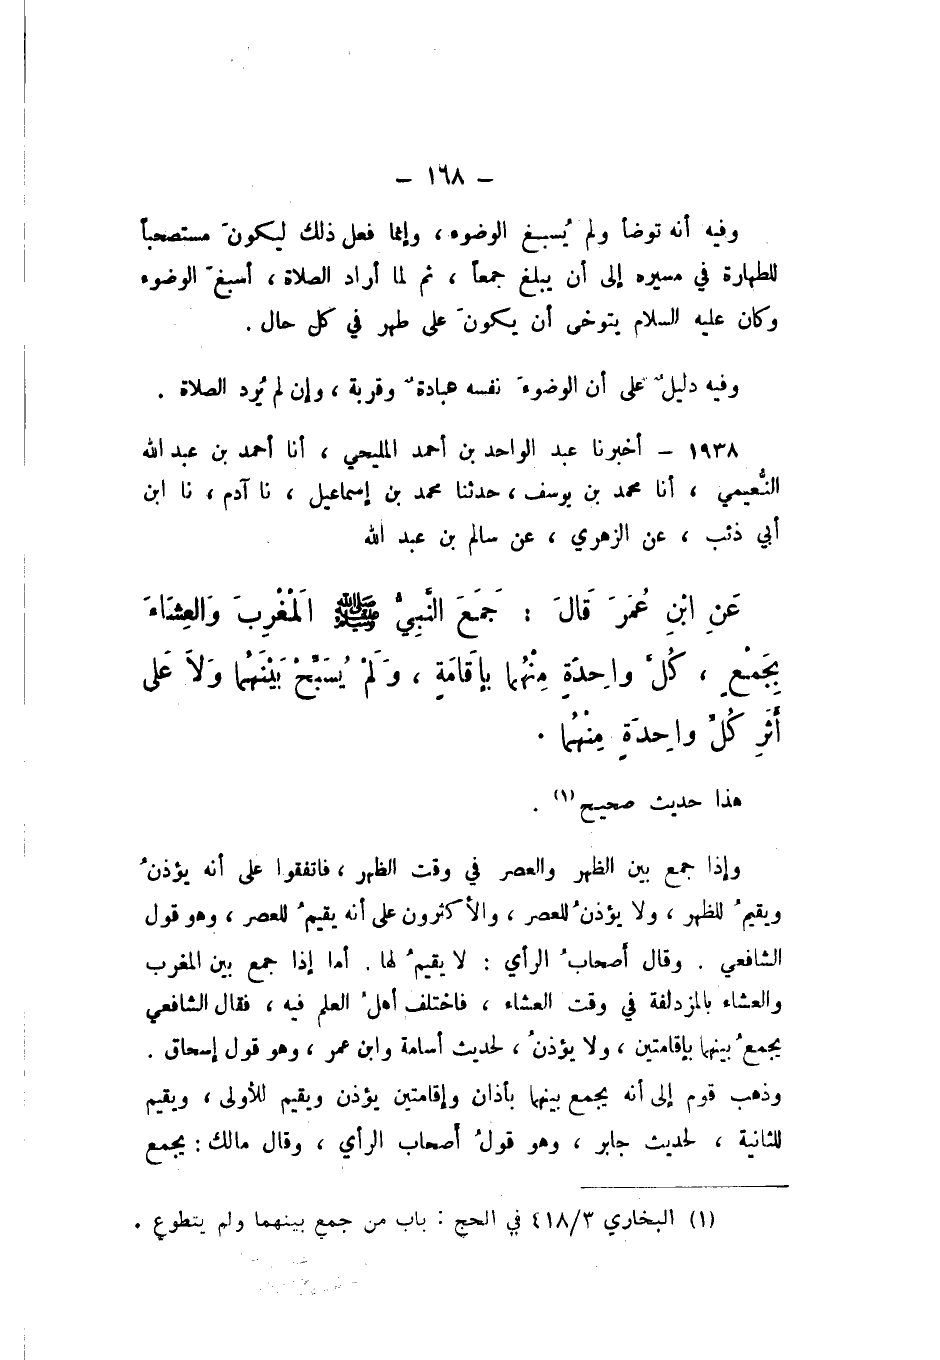 – ١٦٨ –
وفيه أنه توضأ ولم يُسبغ الوضوء ، وإنما فعل ذلك ليكونَ مستصحباً
للطهارة في مسيره إلى أن يبلغ جمعاً ، ثم لما أراد الصلاة ، أسبغَ الوضوء
وكان عليه السلام يتوخى أن يكونَ على طهر في كل حال .
وفيه دليلٌ على أن الوضوءَ نفسه عبادةٌ وقربة ، وإن لم يُرد الصلاة .
١٩٣٨ – أخبرنا عبد الواحد بن أحمد المليحي ، أنا أحمد بن عبد الله
النُّعيمي ، أنا محمد بن يوسف ، حدثنا محمد بن إسماعيل ، نا آدم ، نا ابن
أبي ذئب ، عن الزهري ، عن سالم بن عبد الله
عَنِ ابْنِ عُمَرَ قَالَ : جَمَعَ النَّبِيُّ ﷺ الْمَغْرِبَ وَالعِشَاءَ
بِجَمْعٍ ، كُلُّ واحِدَةٍ مِنْهُما بِإقَامَةٍ ، وَلَمْ يُسَبِّحْ بَيْنَهُما وَلاَ عَلى
أَثَرِ كُلِّ واحِدَةٍ مِنْهُما .
هذا حديث صحيح (١) .
وإذا جمع بين الظهر والعصر في وقت الظهر ، فاتفقوا على أنه يؤذنُ
ويقيمُ للظهر ، ولا يؤذنُ للعصر ، والأكثرون على أنه يقيمُ للعصر ، وهو قول
الشافعي . وقال أصحابُ الرأي : لا يقيمُ لها . أما إذا جمع بين المغرب
والعشاء بالمزدلفة في وقت العشاء ، فاختلف أهلُ العلم فيه ، فقال الشافعي
يجمعُ بينهما بإقامتين ، ولا يؤذنُ ، لحديث أسامة وابن عمر ، وهو قول إسحاق .
وذهب قوم إلى أنه يجمع بينهما بأذان وإقامتين يؤذن ويقيم للأولى ، ويقيم
للثانية ، لحديث جابر ، وهو قولُ أصحاب الرأي ، وقال مالك : يجمع
(١) البخاري ٤١٨/٣ في الحج : باب من جمع بينهما ولم يتطوع .